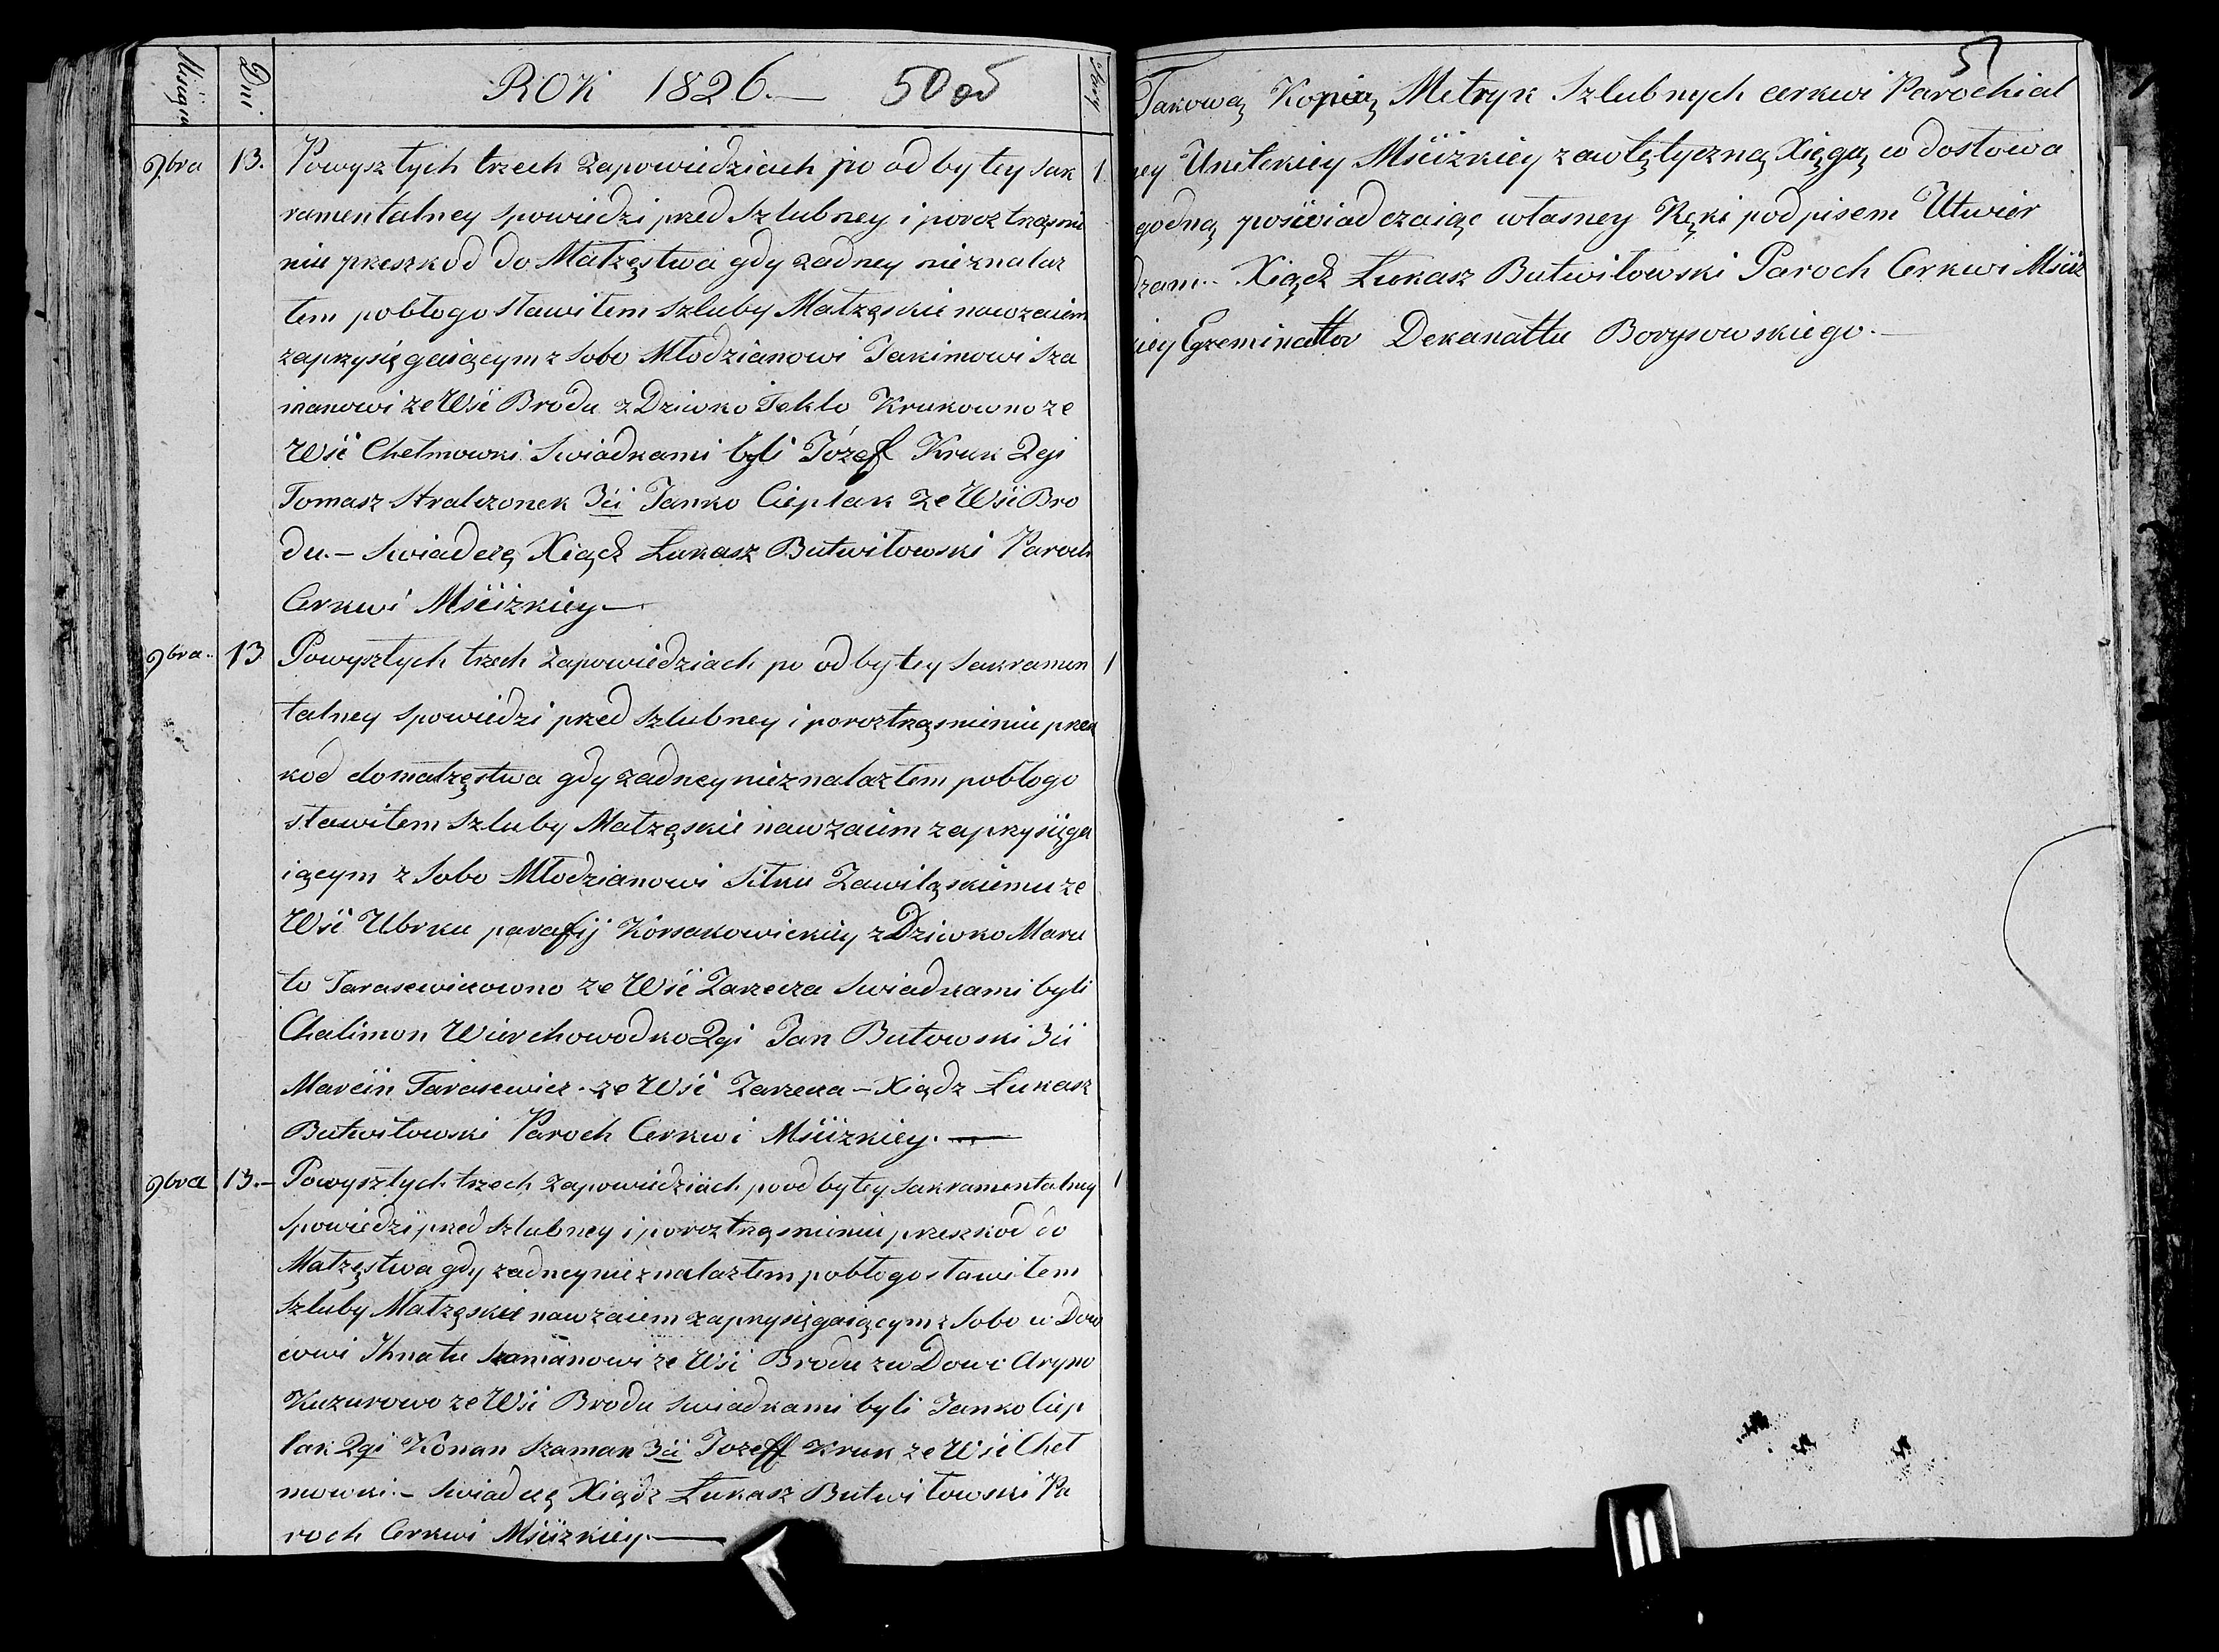 Miesiąca Dni ROK 1826.— 50 об Pary
9bra 13. Powyszłych trzech Zapowiedziach po odbytey Sak 1
ramentalney spowiedzi przed Szlubney i poroztrząsnie
niu przeszkod do Małzęstwa gdy zadney nieznalaz
łem pobłogosławiłem Szluby Małzęskie nawzaiem
zaprzysięgaiącym z Sobo Młodzianowi Jakimowi Sza
manowi ze Wsi Brodu z Dziwko Teklo Krukowno ze
Wsi Chełmowki Swiadkami byli Józef Kruk 2gi
Tomasz Stralczonek 3ci Janko Cieplak ze Wsi Bro
du.— Swiadczę Xiądz Łukasz Butwiłowski Paroch
Cerkwi Mściżkiey—
9bra.. 13 Powyszłych trzech Zapowiedziach po odbytey Sakramen 1
talney Spowiedzi przed Szlubney i poroztrząsnieniu przesz
kod do małzęstwa gdy zadney nieznalazłem pobłogo
sławiłem Szluby Małzęskie nawzaiem zaprzysięga
iącym z Sobo Młodzianowi Sitku Zawiląskiemu ze
Wsi Ubrku parafij Korsakowickiey z Dziwko Maru
to Tarasewicowno ze Wsi Zarzecza Swiadkami byli
Chalimon Wierchowodko 2gi Jan Butowski 3ci
Marcin Tarasewicz. ze Wsi Zarzecza – Xiądz Łukasz
Butwiłowski Paroch Cerkwi Mściżkiey. —
9bra 13.– Powyszłych trzech Zapowiedziach po odbytey Sakramentalney 1
Spowiedzi przed Szlubney i poroztrząsnieniu przeszkod do
Małzęstwa gdy zadney nieznalazłem pobłogosławiłem
Szluby Małzęskie nawzaiem zaprzysięgaiącym z Sobo w Dow
cowi Ihnatu Szamanowi ze Wsi Brodu z w Dowi Aryno
Kuzurowo ze Wsi Brodu Swiadkami byli Janko Ciep
lak 2gi Konan Szaman 3ci Jozeff Kruk ze Wsi Cheł
mowki.– Swiadczę Xiądz Łukasz Butwiłowski Pa
roch Cerkwi Mściżkiey.—
51
Takową Kopią Metryk Szlubnych cerkwi Parochial
ney Unitskiey Mściżkiey z awtętyczną Xięgą co do słowa
godną poświadczaiąc własney Ręki podpisem Utwier
dzam.. Xiądz Łukasz Butwiłowski Paroch Cerkwi Mściż
kiey Egzeminattor Dekanattu Borysowskiego.—